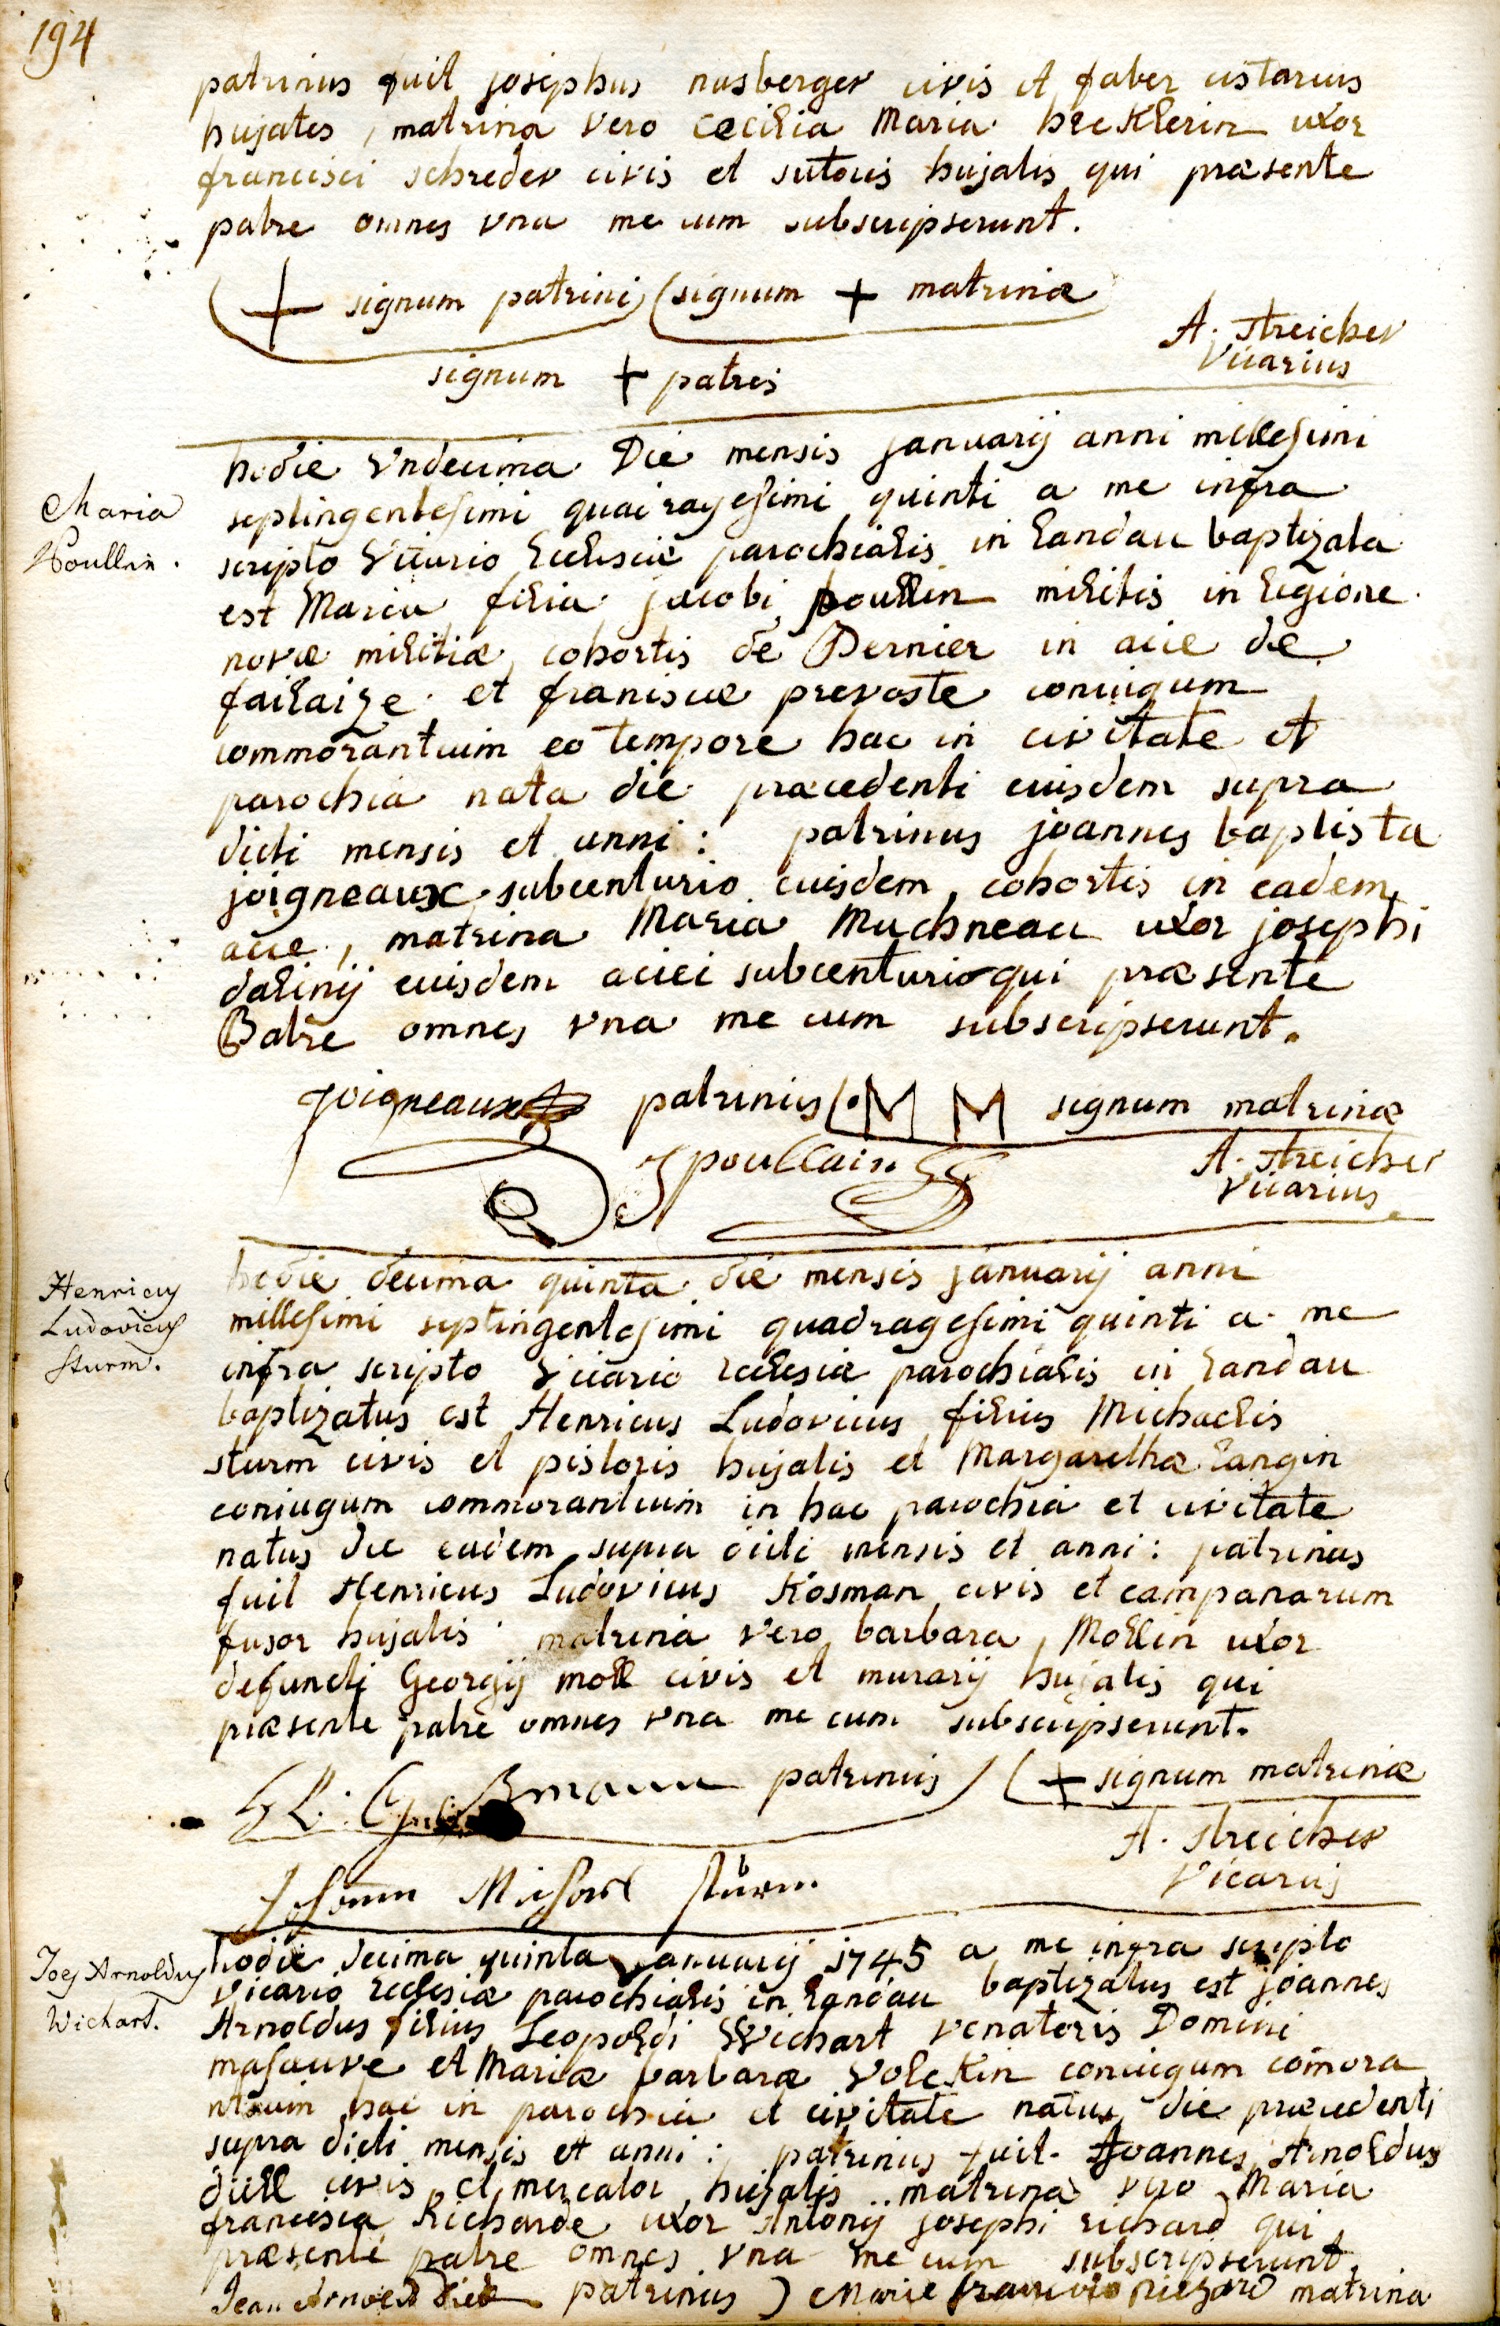 194
patrinus fuit josephus nusberger civis et faber cistarius
hujates, matrina vero Cecilia Maria hecklerin uxor
francisci schreder civis et sutoris hujatis qui præsente
patre omnes vna me cum subscripserunt.
+ signum patrini (signum + matrinæ
A. Streicher
Vicarius
signum + patris
Maria
Poullin.
hodie vndecima Die mensis januarij anni millesimi
septingentesimi quadragesimi quinti a me infra
scripto Vicario Ecclesiæ parochialis in Landau baptizata
est Maria filia jacobi poullin militis in legione
novæ militiæ cohortis de Dernier in acie de
failaize et franiscæ prevoste coniugum
commorantium eo tempore hac in civitate et
parochia nata die præcedenti euisdem supra
dicti mensis et anni: patrinus joannes baptista
joigneaux subcenturio euisdem cohortis in eadem
acie, matrina Maria Muchneau uxor josephi
dalinij euisdem aciei subcenturio qui præsente
Patre omnes vna me cum subscripserunt.
Joigneaux patrinus (. M M signum matrinæ
J poullain
A. Streicher
Vicarius
Henricus
Ludovicus
Sturm.
hodie decima quinta die mensis januarij anni
millesimi septingentesimi quadragesimi quinti a me
infra scripto Vicario Ecclesiæ parochialis in Landau
baptizatus est Henricus Ludovicus filius Michaelis
sturm civis et pistoris hujatis et Margarethæ Langin
coniugum commorantium in hac parochia et civitate
natus die eadem supra dicti mensis et anni: patrinus
fuit Henricus Ludovicus Kosman civis et campanarum
fusor hujatis matrina vero barbara Mollin uxor
defuncti Georgij moll civis et murarij hujatis qui
præsente patre omnes vna me cum subscripserunt.
H L. patrinus ) ( + signum matrinæ
A. Streicher
Vicarius
Johann Michael Sturm.
Joes Arnoldus
Wichart.
hodie decima quinta januarij 1745 a me infra scripto
Vicario Ecclesiæ parochialis in Landau baptizatus est joannes
Arnoldus filius Leopoldi Wichart venatoris Domini
masauve et Mariæ barbaræ Volckin coniugum comora
ntium hac in parochia et civitate natus die præcedenti
supra dicti mensis et anni: patrinus fuit Joannes Arnoldus
düll civis et mercator hujatis .. matrina vero Maria
francisca Richarde uxor Antonij josephi richard qui
præsente patre omnes vna me cum subscripserunt
Jean Arnold patrinus ) Marie richard matrina